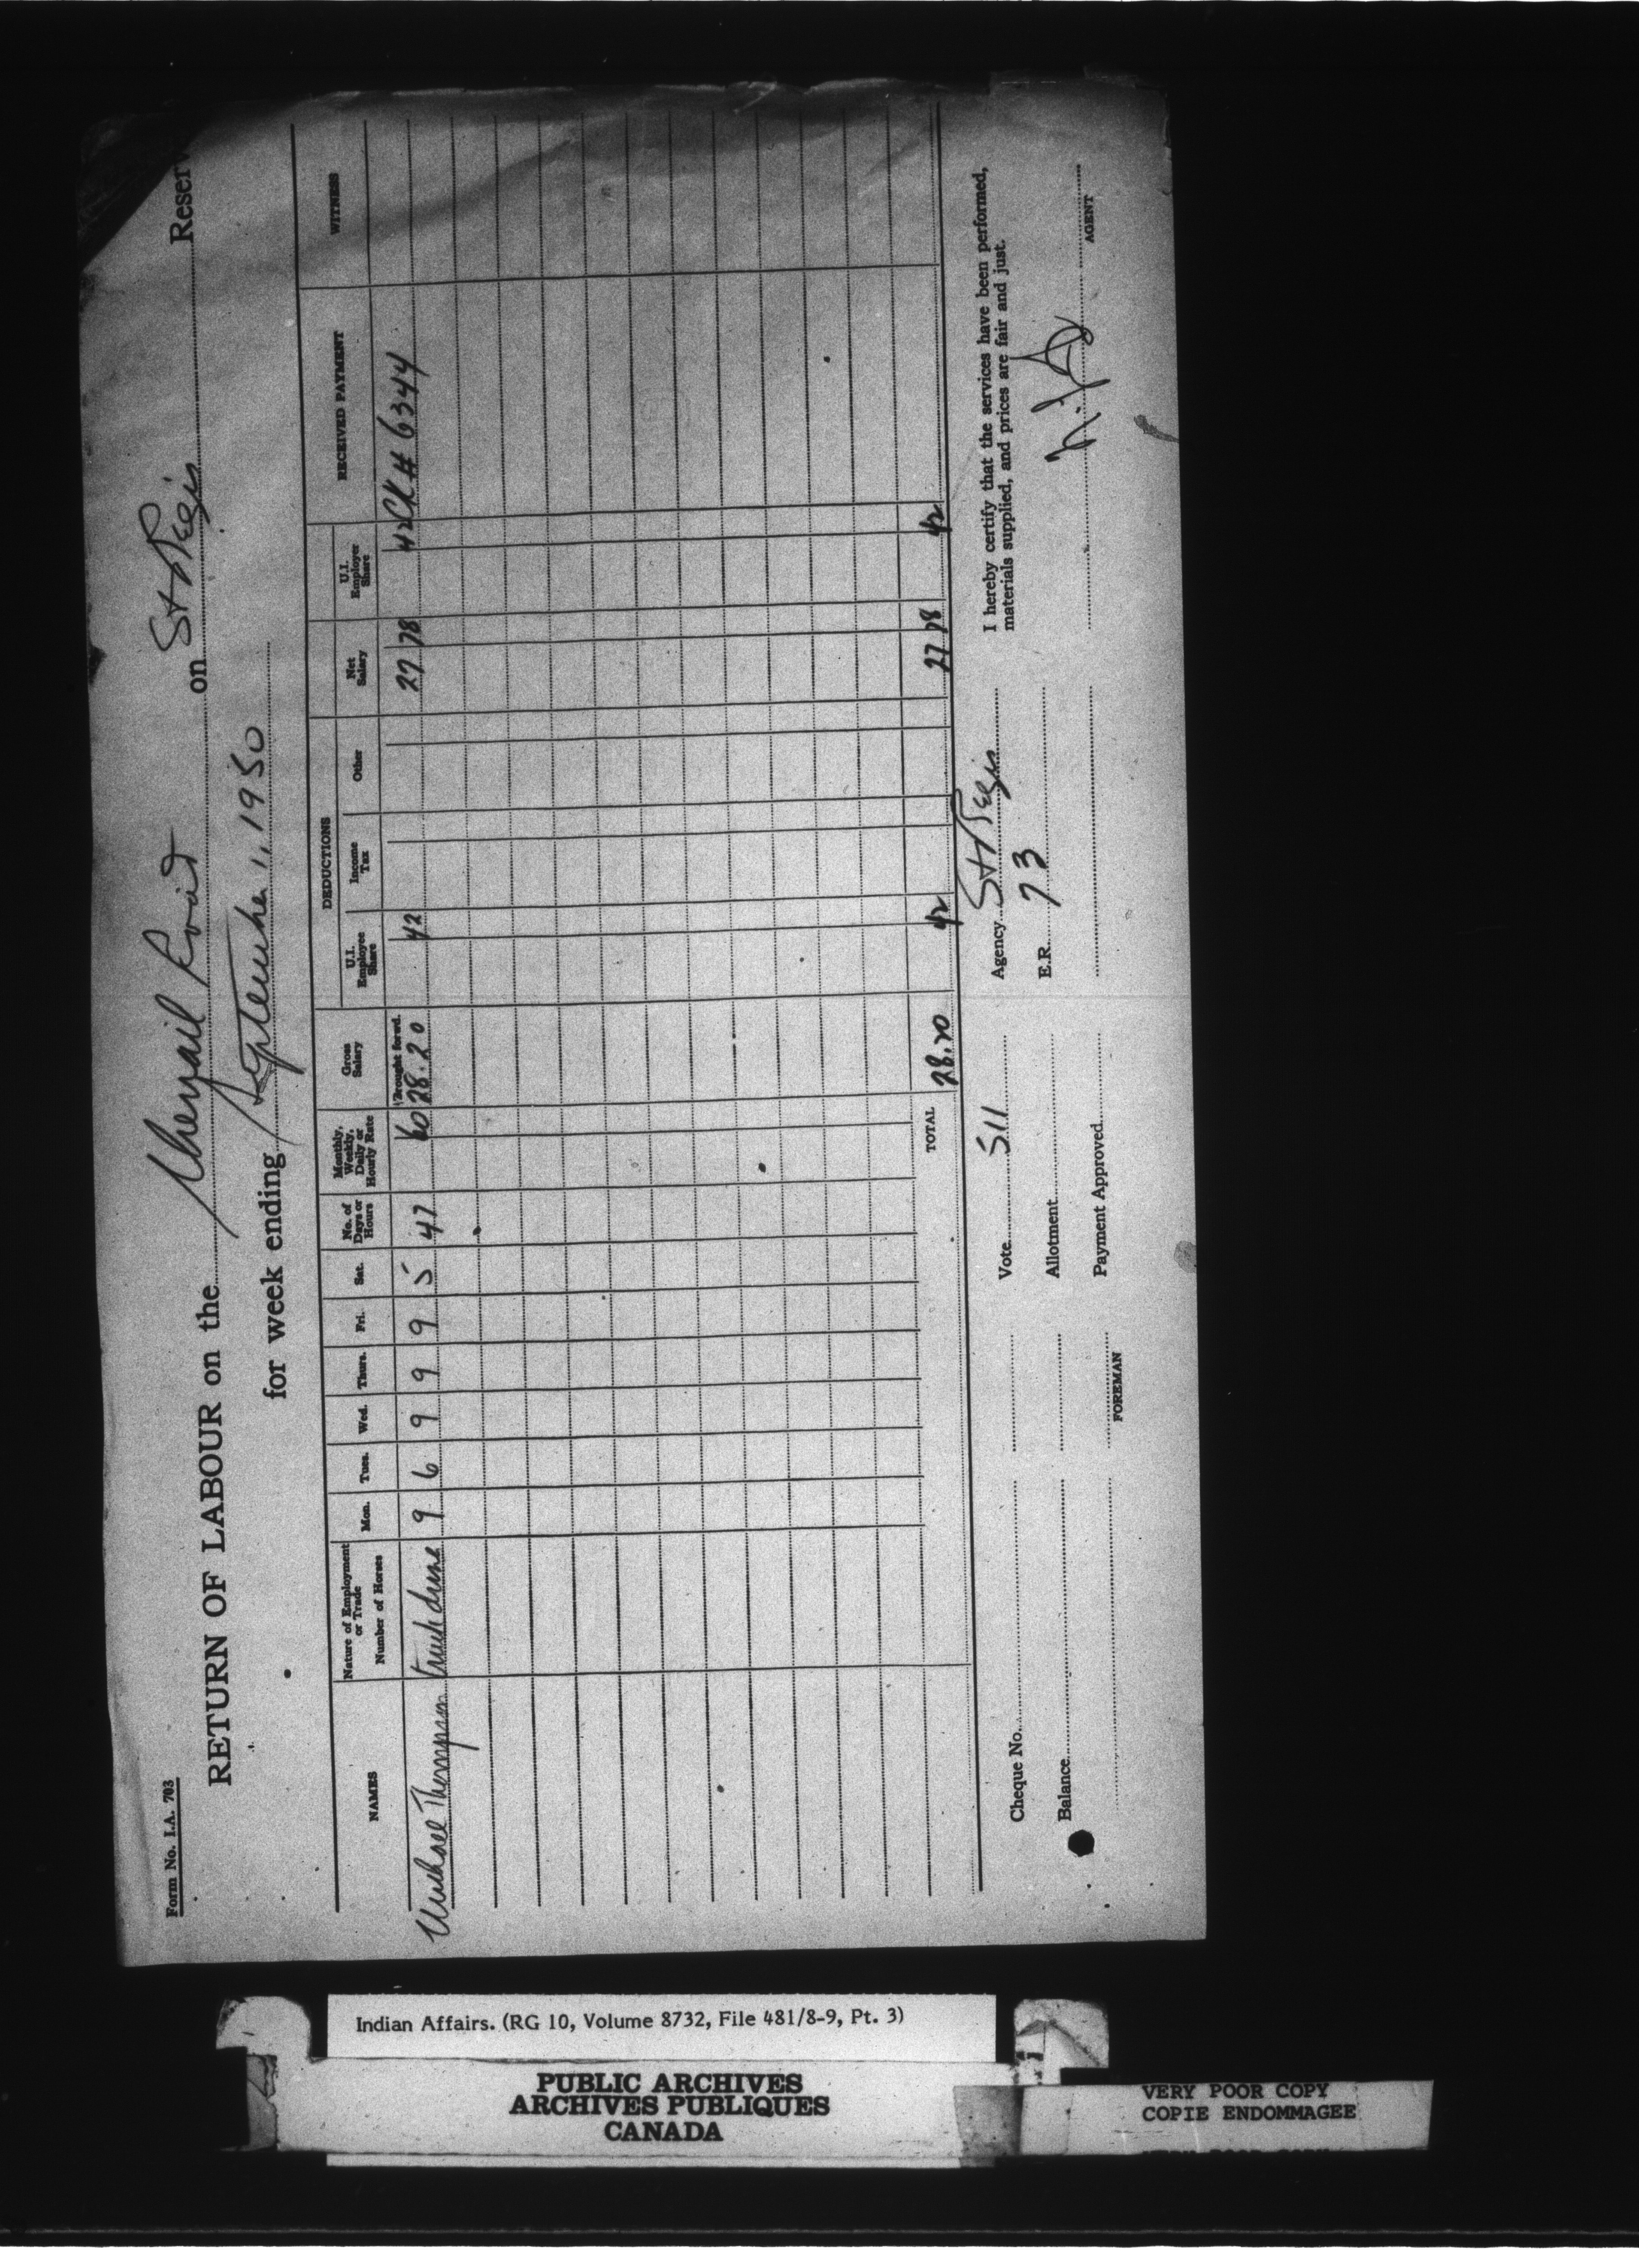 Form No. I.A. 703
RETURN OF LABOUR on the Chenail Road on St Regis Reserv
for week ending September 1, 1950
NAMES
Nature of Employment or Trade
Number of Horses
Mon.
Tues.
Wed.
Thurs.
Fri.
Sat.
No. of Days or Hours
Monthly, Weekly, Daily or Hourly Rate
Gross Salary
DEDUCTIONS
U.I. Employee Share
Income Tax
Other
Net Salary
U.I. Employer Share
RECEIVED PAYMENT
WITNESS
(Brought forwd.
Michael Thompson truck driver 9 6 9 9 9 5 47 60 28.20 42 27 78 42 CK # 6344
TOTAL 28.20 42 27 78 42
Cheque No.
Vote 511
Agency St Regis
I hereby certify that the services have been performed,
materials supplied, and prices are fair and just.
Balance
Allotment
E.R. 73
FOREMAN
Payment Approved
AGENT
Indian Affairs. (RG 10, Volume 8732, File 481/8-9, Pt. 3)
PUBLIC ARCHIVES
ARCHIVES PUBLIQUES
CANADA
VERY POOR COPY
COPIE ENDOMMAGEE